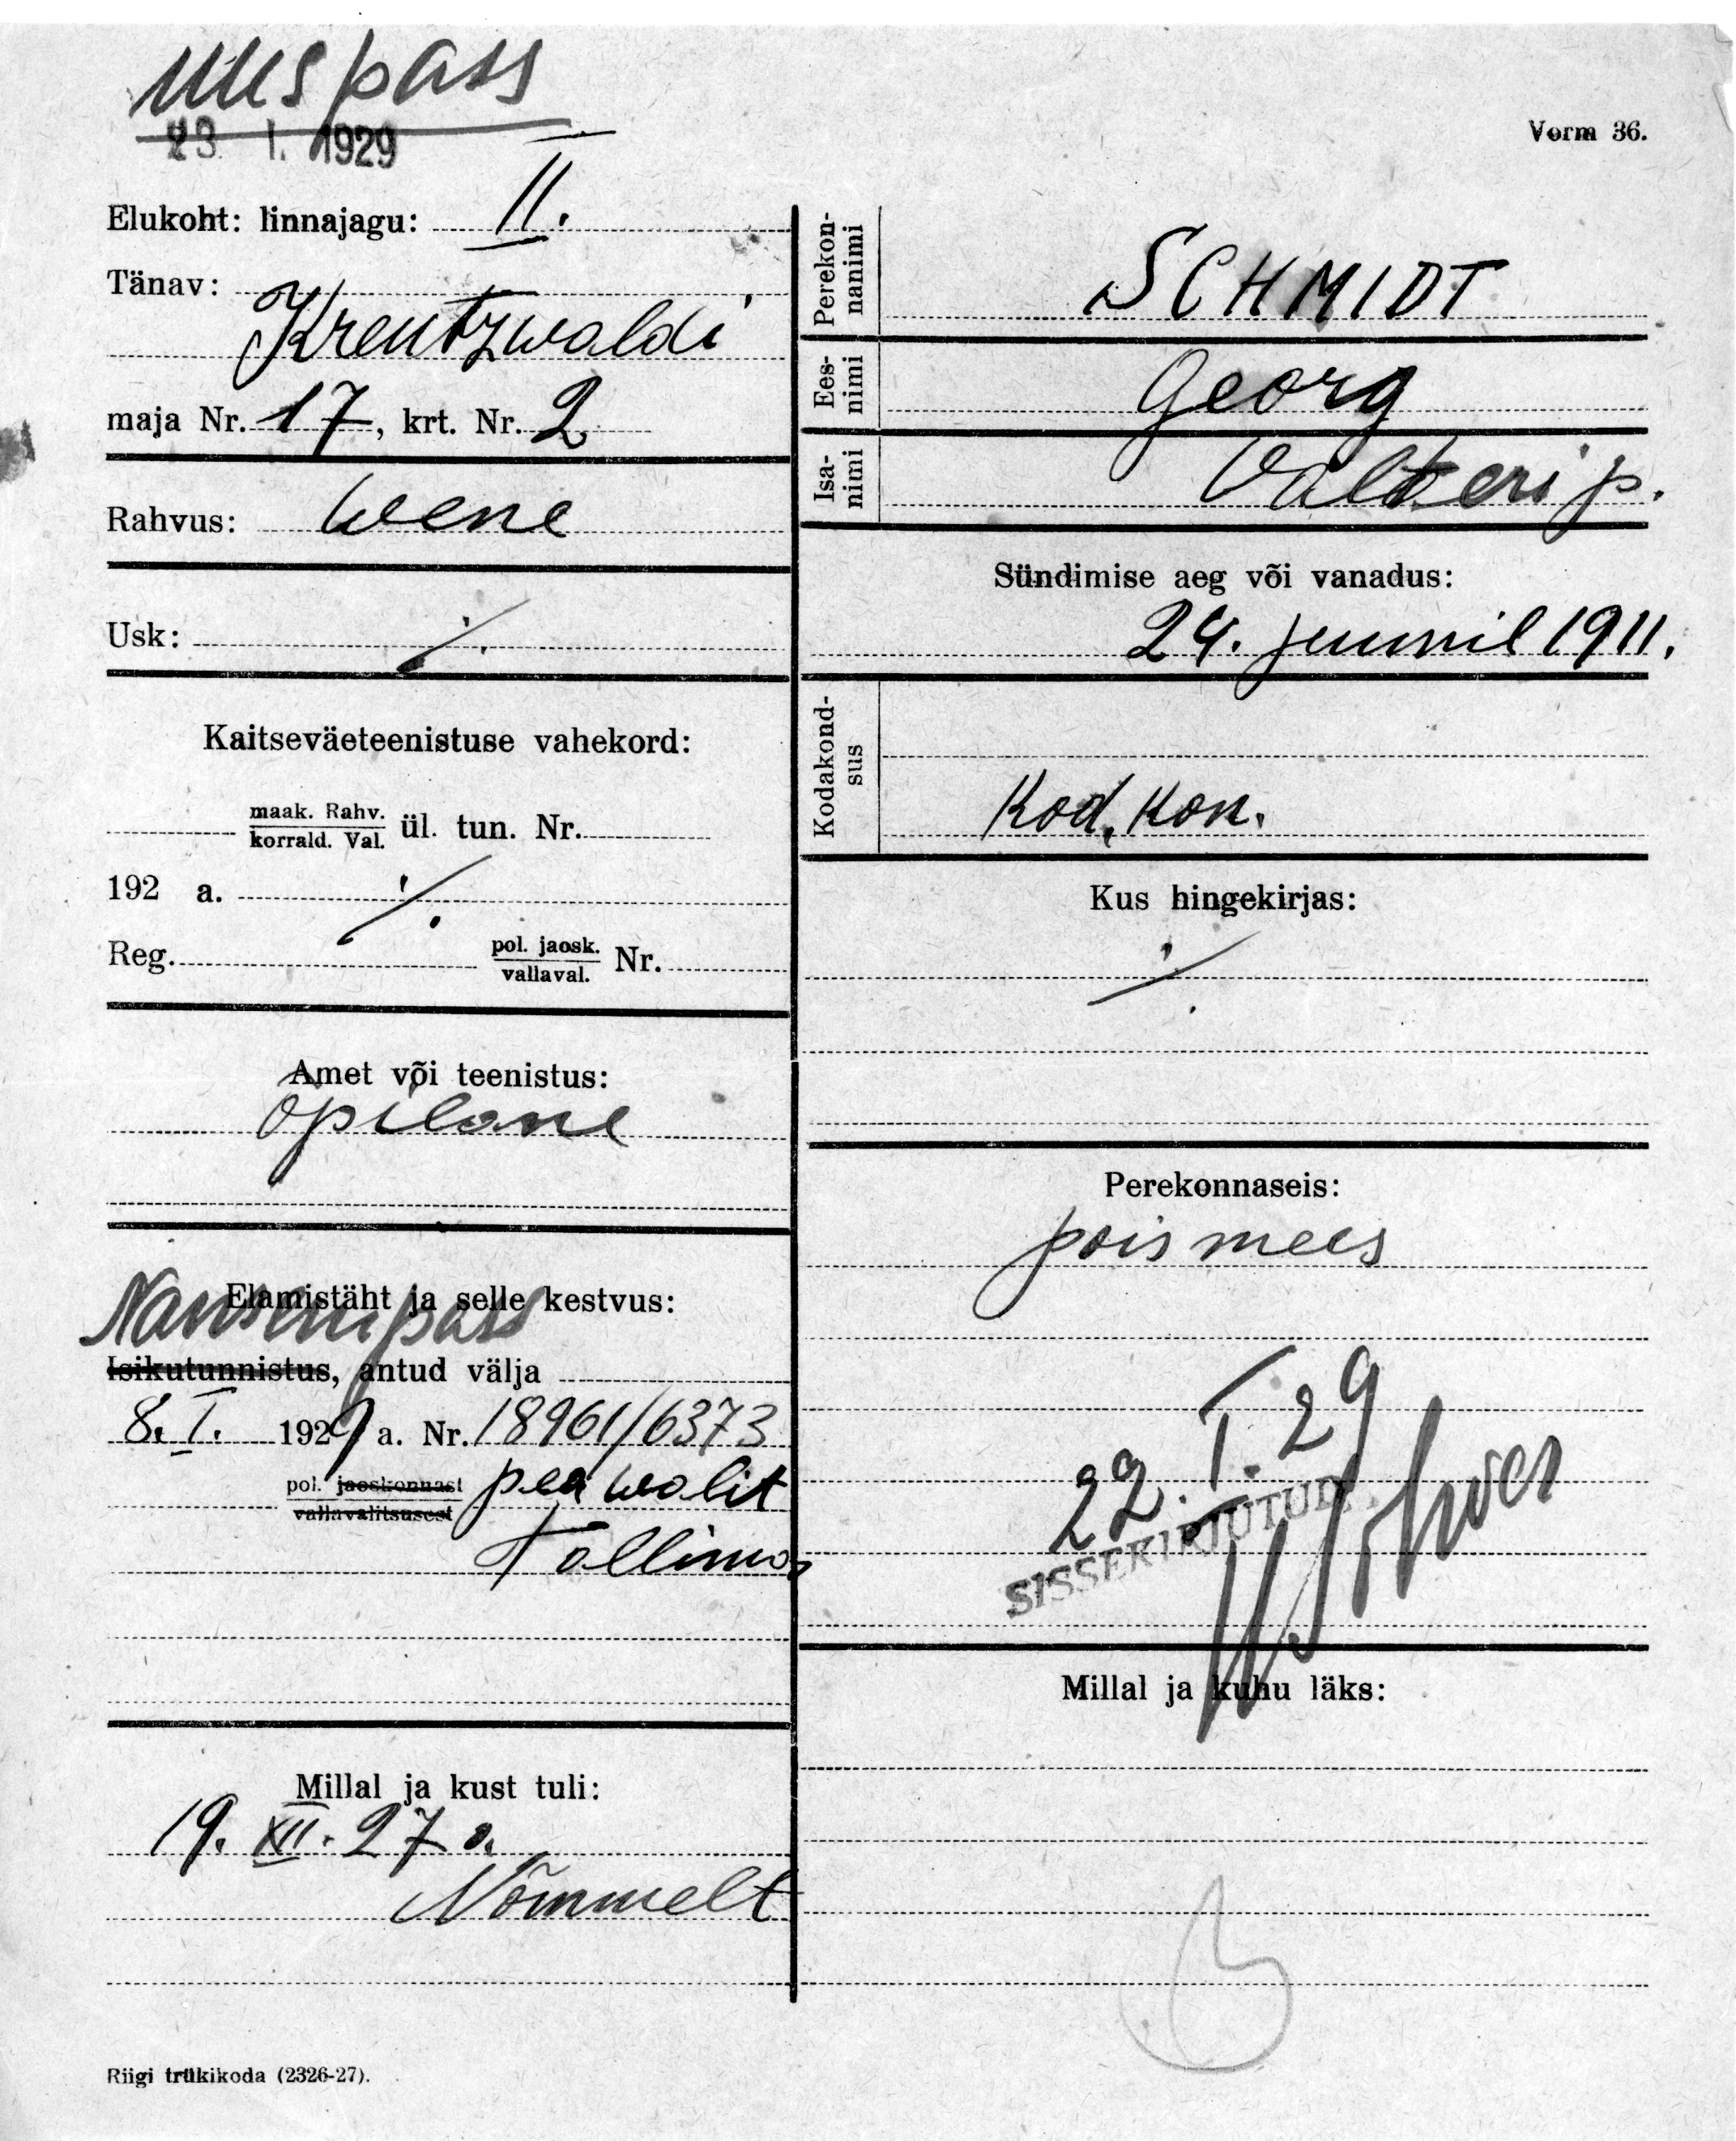 uus pass
23. I. 1929
Vorm 36.
Elukoht: linnajagu: II.
Tänav:
Kreutzwaldi
maja Nr. 17, krt. Nr. 2
Rahvus: wene
Usk: ·/.
Kaitseväeteenistuse vahekord:
maak. Rahv.
korrald. Val.
ül. tun. Nr.
192 a. ·/.
Reg. pol. jaosk.
vallaval.
Nr.
Amet või teenistus:
õpilane
Elamistäht ja selle kestvus:
Nanseni pass
Isikutunnistus, antud välja
8. I. 1929 a. Nr. 18961/6373
pol. jaoskonnast
vallavalitsusest
peawalit
Tallinnas
Millal ja kust tuli:
19. XII. 27 a.
Nõmmelt
Riigi trükikoda (2326-27).
Perekon-
nanimi
SCHMIDT
Ees-
nimi
Georg
Isa-
nimi
Valteri p.
Sündimise aeg või vanadus:
24. juunil 1911.
Kodakond-
sus
Kod. kon.
Kus hingekirjas:
·/.
Perekonnaseis:
poismees
22. I. 29
SISSEKIRJUTUD.
Millal ja kuhu läks: